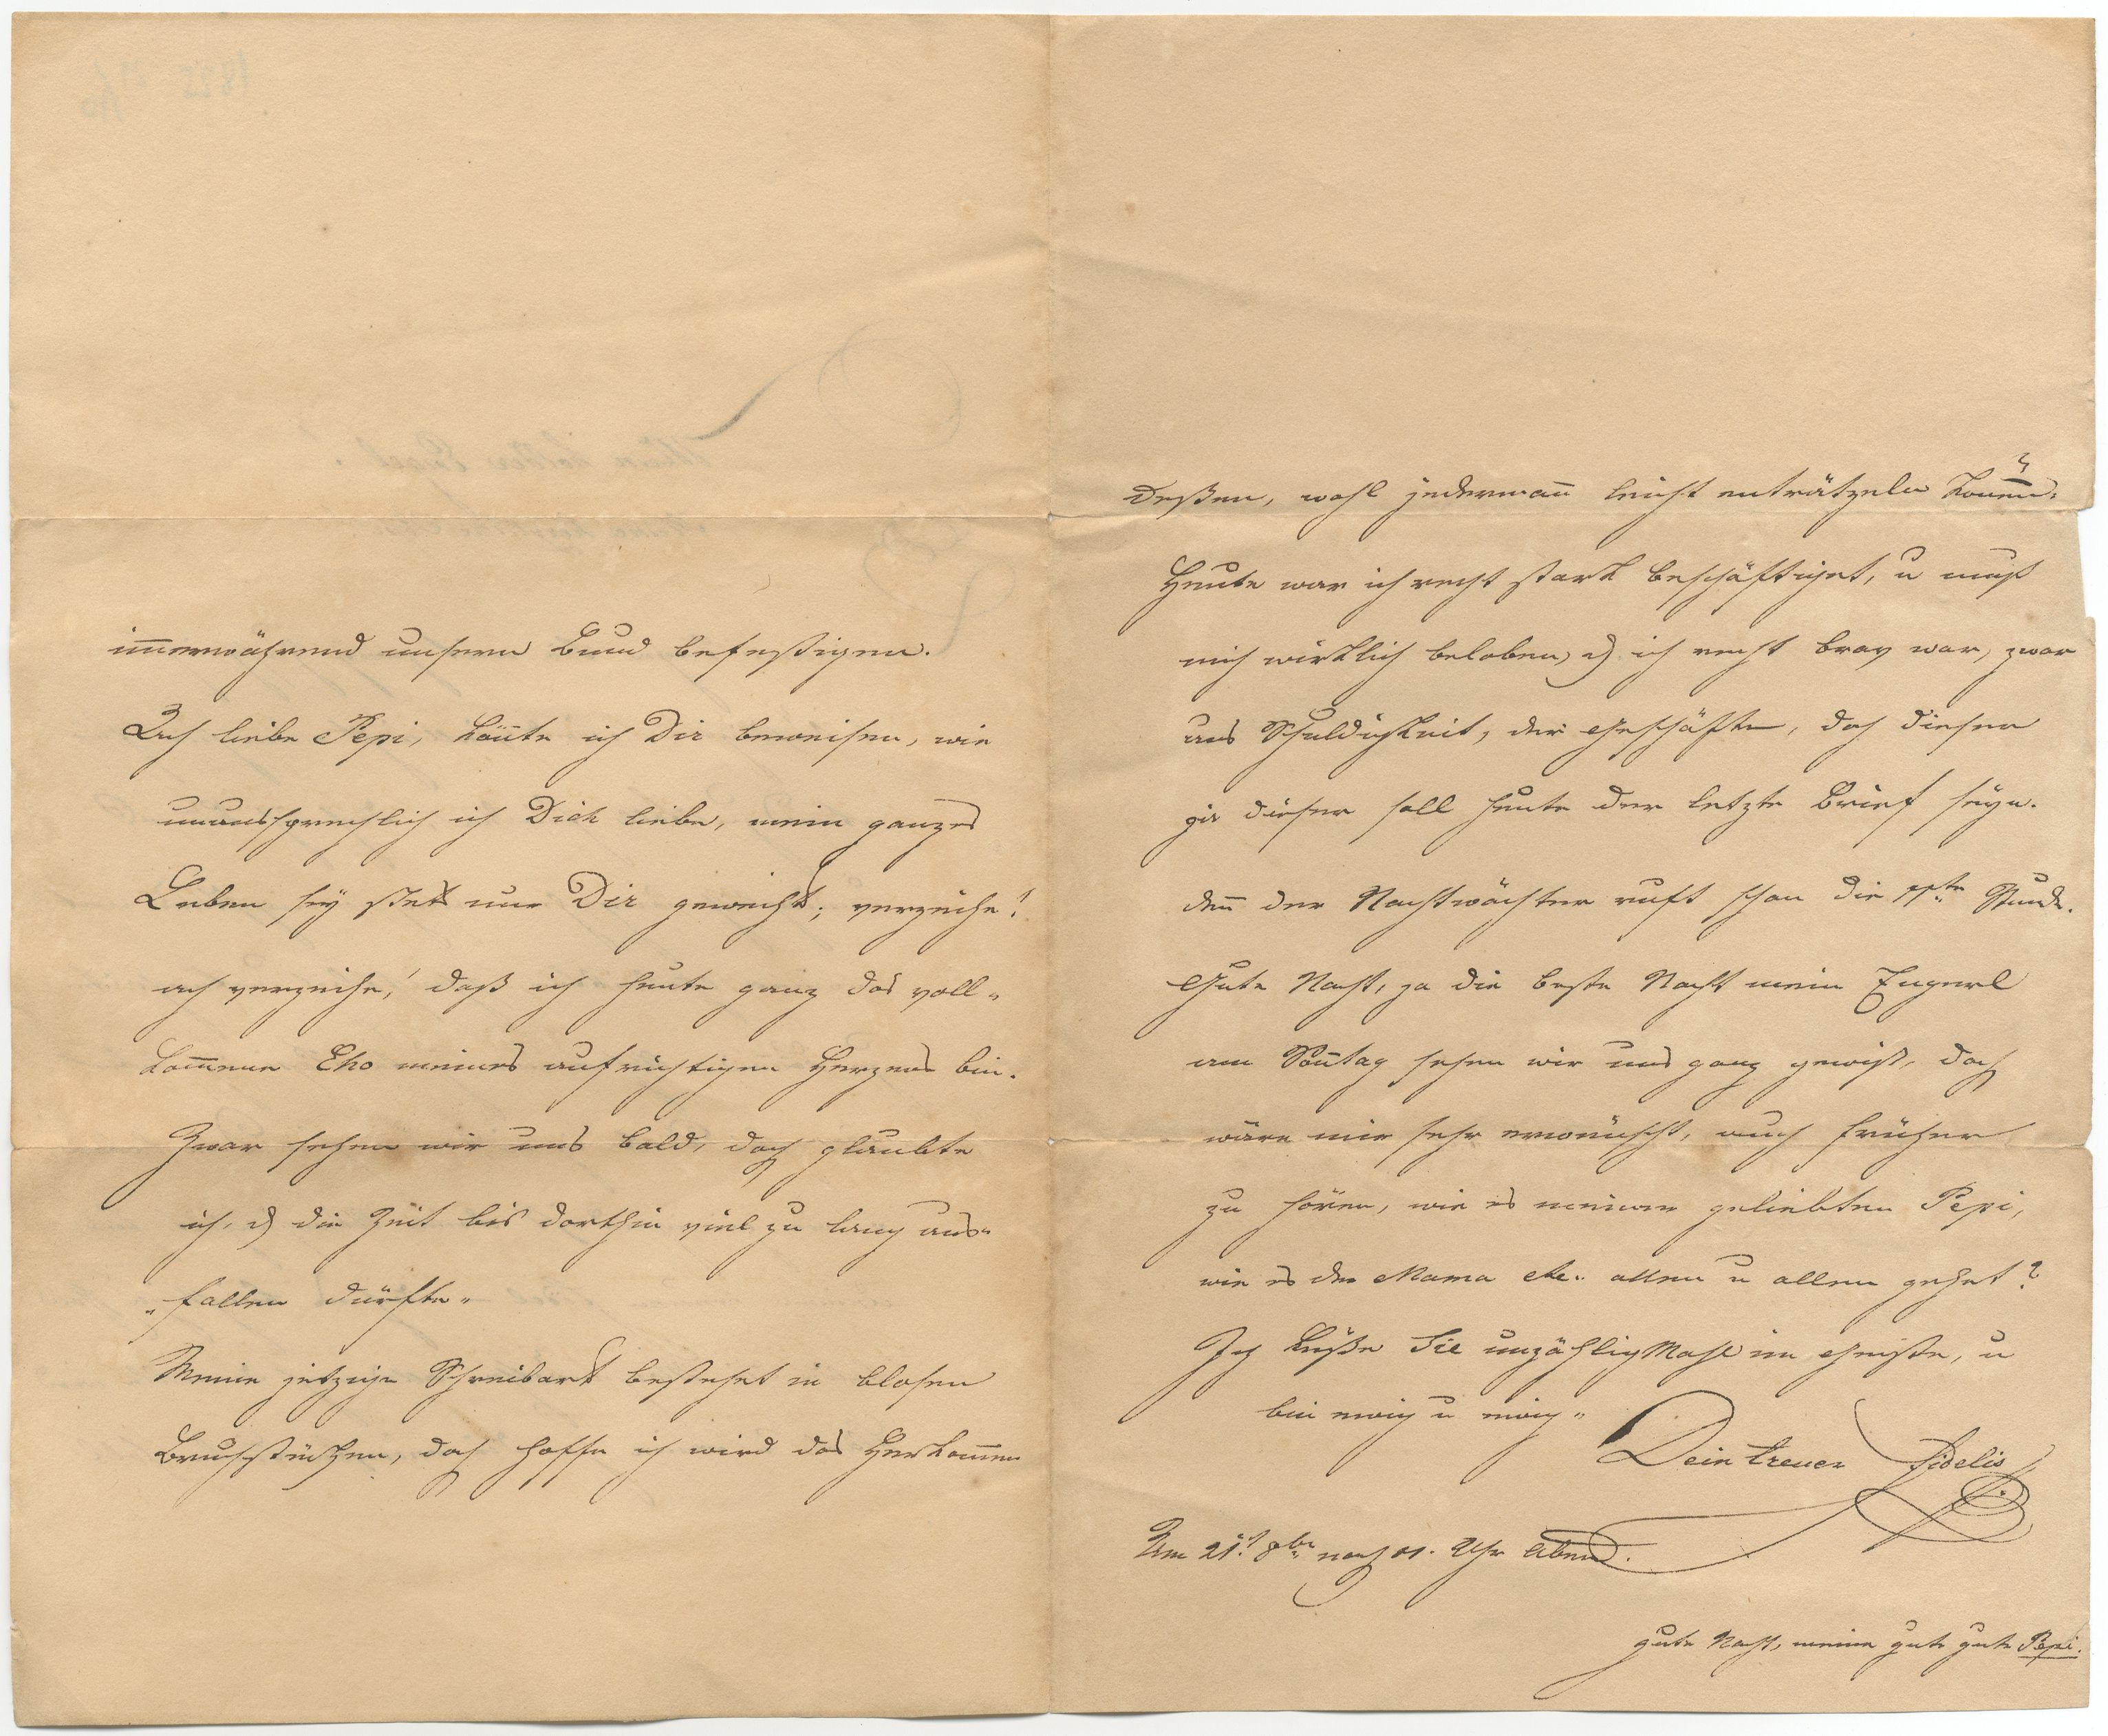 im̄erwährend unsern Bund befestigen.
Ach liebe Pepi, kön̄te ich Dir beweisen, wie
unaussprechlich ich Dich liebe, mein ganzes
Leben sey stets nur Dir geweiht; verzeihe!
ach verzeihe! daß ich heute ganz das voll-
kom̄ene Eho meines aufrichtigen Herzens bin.
Zwar sehen wir uns bald, doch glaubte
ich, d die Zeit bis dorthin viel zu lang aus-
„fallen dürfte„
Meine jetzige Schreibart bestehet in blosen
Bruchstücken, doch hoffe ich wird das Herkom̄en
deßen, wohl jederman̄ leicht enträtzeln können.
Heute war ich recht stark beschäftiget, u muß
mich wirklich beloben, d ich recht brav war, zwar
aus Schuldigkeit, der Geschäfte, doch diesen
dieser soll heute der letzte Brief seyn.
den̄ der Nachtwächter ruft schon die 11te Stunde.
Gute Nacht, ja die beste Nacht mein Engerl
am Son̄tag sehen wir uns ganz gewiß, doch
wäre mir sehr erwünscht, auch früher
zu hören, wie es meiner geliebten Pepi,
wie es der Mama etc. allen u allen gehet?
Ich küße Sie unzähligMahl im Geiste, u
bin ewig u ewig„
Dein treuer Fidelis
Am 21t 8br nach 11. Uhr Abend.
gute Nacht, meine gute gute Pepi.